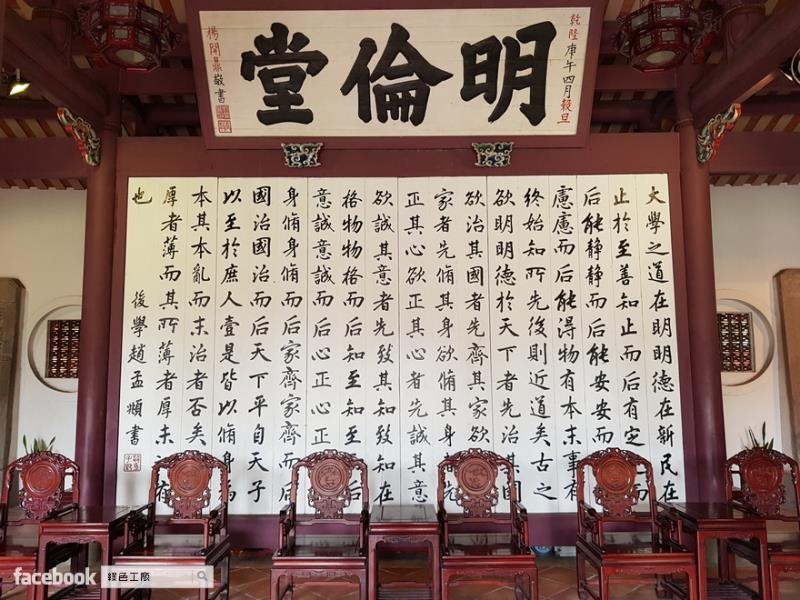 乾隆庚午四月穀旦
明倫堂
楊開鼎敬書
大學之道在明明德在新民在
止於至善知止而后有定而
后能静静而后能安安而
慮慮而后能得物有本末事有
終始知所先後則近道矣古之
欲明明德於天下者先治其國
欲治其國者先齊其家欲
家者先脩其身欲脩其身者先
正其心欲正其心者先誠其意
欲誠其意者先致其知致知在
格物物格而后知至知至而后
意誠意誠而后心正心正
身脩身脩而后家齊家齊而后
國治國治而后天下平自天子
以至於庶人壹是皆以脩身為
本其本亂而末治者否矣
厚者薄而其所薄者厚未之有
也
後學趙孟頫書
facebook 綠色工廠